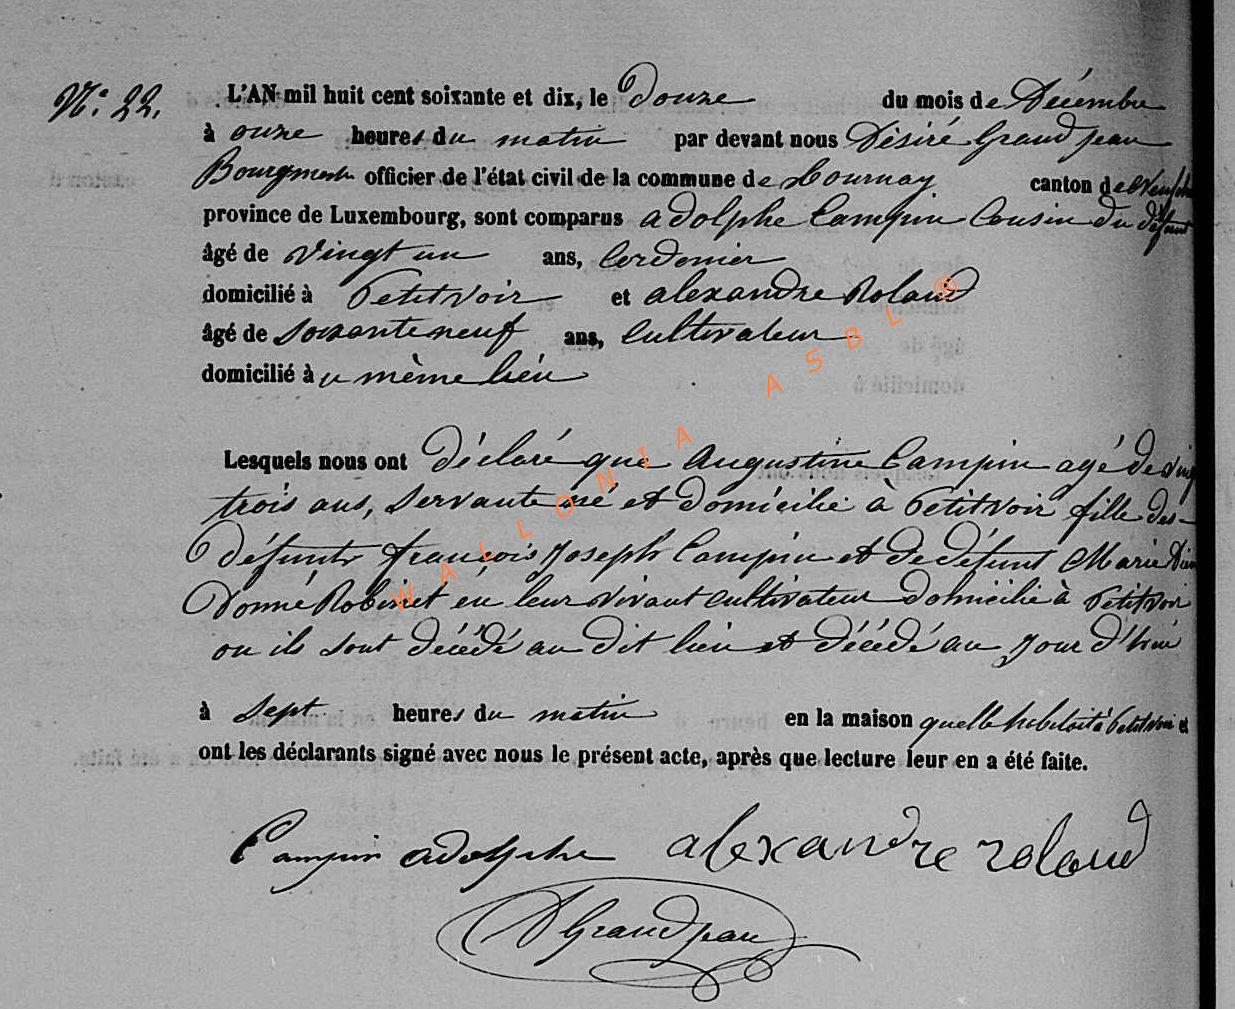 N: 22.
L'AN mil huit cent soixante et dix, le Douze du mois de Décembre
à onze heures du matin par devant nous Désiré Grandjean
Bourgmestre officier de l'état civil de la commune de Tournay canton de
province de Luxembourg, sont comparus adolphe Campin Cousin du défunt
âgé de vingt un ans, Cordonier
domicilié à Petitvoir et alexandre Roland
âgé de soixante neuf ans, Cultivateur
domicilié à u mème liéu
Lesquels nous ont déclaré que Augustine Campin agé de ving
trois ans, servante né et domicilié à Petitvoir fille des
défunts françois Joseph Campin et de défunt Marie Dieu
Donné Robinet en leur vivant cultivateur domicilié à Petitvoir
ou ils sont décédé au dit lieu et décédé au jour d'hui
à sept heures du matin en la maison quelle habitoit à Petitvoir et
ont les déclarants signé avec nous le présent acte, après que lecture leur en a été faite.
Campin adolphe alexandre roland
D Grandjean
WALLONIA ASBL ®